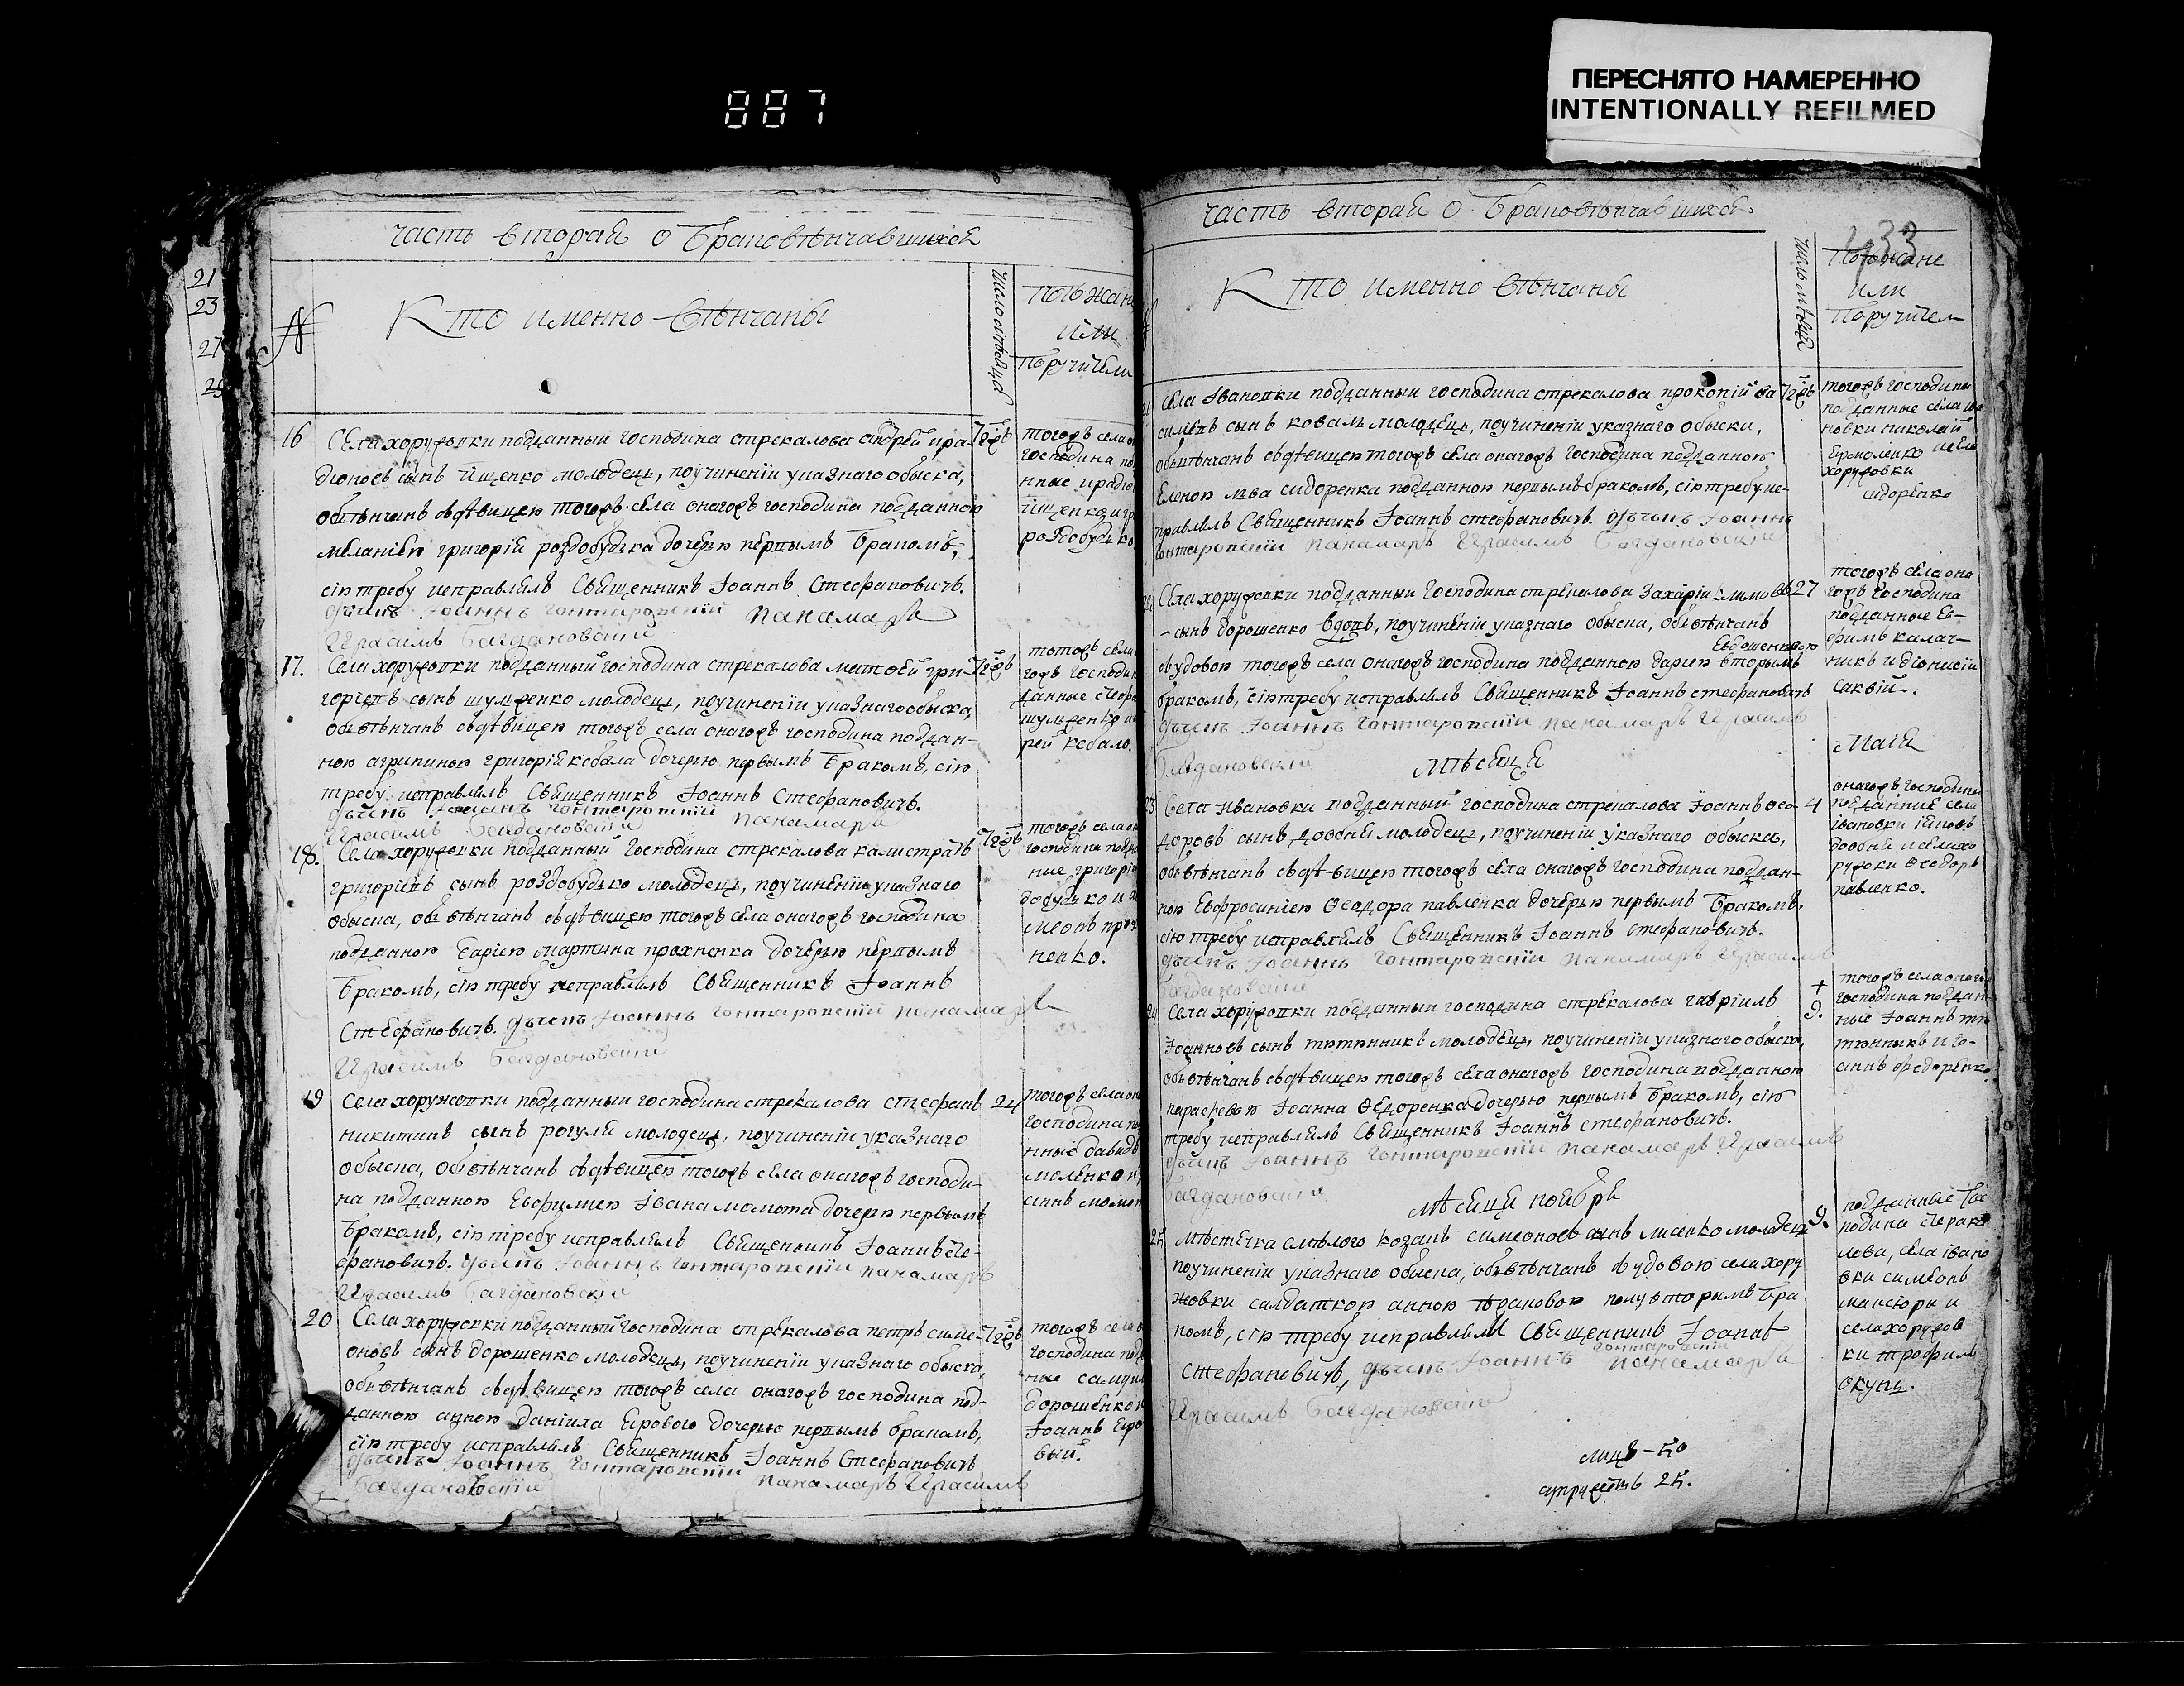 887
ПЕРЕСНЯТО НАМЕРЕННО
INTENTIONALLY REFILMED
21
23
27
29
часть вторая о браковѣнчавшихся
№
Кто именно вѣнчаны
поѣжан
или
поручители
16
Села хоружовки подданный господина стрекалова андрей ира-
дионовъ сынъ йщенко молодецъ, поучиненіи указнаго обыска,
обвѣнчанъ здѣвицею тогожъ села оногожъ господина подданною
меланіею григорія роздобудька дочерью первымъ бракомъ,
сію требу исправлялъ священникъ Іоаннъ Стефановичъ.
дьячекъ Іоаннъ Гонтаровскій панамарь
Ирасимъ Багдановскій
тогожъ села о
господина по
нные ирадіо
йщенко и гр
роздобудько
17.
Села хоружовки подданный господина стрекалова матвей гри-
горіевъ сынъ шулженко молодецъ, поучиненіи указнаго обыска,
обвѣнчанъ здѣвицею тогожъ села оногожъ господина поддан-
ною агрипиною григорія кобала дочерью первымъ бракомъ, сію
требу исправлялъ священникъ Іоаннъ Стефановичъ.
дьячекъ Іоаннъ Гонтаровскій панамарь
Ирасимъ Багдановскій
тогожъ села
гожъ господин
данные стефа
шулженко и
рей кобало.
18.
Села хоружовки подданный господина стрекалова калистратъ
григоріевъ сынъ роздобудько молодецъ, поучиненіи указнаго
обыска, обвѣнчанъ здѣвицею тогожъ села оногожъ господина
подданною дарією мартина прохненка дочерью первымъ
бракомъ, сію требу исправлялъ священникъ Іоаннъ
Стефановичъ. дьячекъ Іоаннъ Гонтаровскій панамарь
Ирасимъ Багдановскій
тогожъ села он
господина подда
ные, григорій
добудько и
меонъ прох
ненко.
19
Села хоружовки подданный господина стрекалова стефанъ
24
никитинъ сынъ рогуля молодецъ, поучиненіи указнаго
обыска, обвѣнчанъ здѣвицею тогожъ села оногожъ господи-
на подданною Евфуміею Івана момота дочерью первымъ
бракомъ, сію требу исправлялъ священникъ Іоаннъ сте-
фановичъ. дьячекъ Іоаннъ Гонтаровскій панамарь
Ирасимъ Багдановскій
тогожъ села он
господина по
нные давидъ
моленко и
аннъ момот
20
Села хоружовки подданный господина стрекалова петръ симе-
оновъ сынъ дорошенко молодецъ, поучиненіи указнаго обыска,
обвѣнчанъ здѣвицею тогожъ села оногожъ господина под-
данною анною даніила Ерового дочерью первымъ бракомъ,
сію требу исправлялъ священникъ Іоаннъ Стефановичъ
дьячекъ Іоаннъ Гонтаровскій панамарь Ирасимъ
Багдановскій
тогожъ села о
господина под
ные самуил
дорошенко и
Іоаннъ Еро
вый.
часть вторая о браковѣнчавшихся
133
Кто именно вѣнчаны
Поѣжане
или
Поручител
Села Івановки подданный господина стрекалова прокопій ва
силіевъ сынъ коваль молодецъ, поучиненіи указнаго обыски,
обвѣнчанъ здѣвицею тогожъ села оногожъ господина подданною
Еленою льва сидоренка подданною первымъ бракомъ, сію требу ис-
правлялъ священникъ Іоаннъ стефановичъ. дьячекъ Іоаннъ
Гонтаровскій панамарь Ирасимъ Багдановскій
тогожъ господина
подданные села ива
новки николай
Ермоленко и села
хоружовки
сидоренко
Села хоружовки подданный господина стрекалова Захарій
27
сынъ дорошенко вдовъ, поучиненіи указнаго обыска, обвѣнчанъ
звудовою тогожъ села оногожъ господина подданною дарією вторымъ
бракомъ, сію требу исправлялъ священникъ Іоаннъ стефановичъ
дьячекъ Іоаннъ Гонтаровскій панамарь Ирасимъ
Багдановскій
тогожъ села оно
гожъ господина
подданные Ев-
фимъ калач-
никъ и діонисій
саквій.
мѣсяця
Маія
23
Села Ивановки подданный господина стрекалова Іоаннъ ѳео-
4
доровъ сынъ довбня молодецъ, поучиненіи указнаго обыска,
обвѣнчанъ здѣвицею тогожъ села оногожъ господина поддан-
ною Евфросиніею Ѳеодора павленка дочерью первымъ бракомъ,
сію требу исправлялъ священникъ Іоаннъ стефановичъ.
дьячекъ Іоаннъ Гонтаровскій панамарь Ирасимъ
Багдановскій
оногожъ господина
подданние села
івановки іяковъ
довбня и села хо
ружовки ѳеодоръ
павленко.
24
Села хоружовки подданный господина стрекалова гавріилъ
9.
Іоанновъ сынъ тютюнникъ молодецъ, поучиненіи указнаго обыска,
обвѣнчанъ здѣвицею тогожъ села оногожъ господина подданною
параскевою Іоанна Ѳедоренка дочерью первымъ бракомъ, сію
требу исправлялъ священникъ Іоаннъ стефановичъ.
дьячекъ Іоаннъ Гонтаровскій панамарь Ирасимъ
Багдановскій
тогожъ села оногожъ
господина поддан-
ные Іоаннъ тю
тюнникъ и Іо-
аннъ ѳедоренко.
мѣсяця ноября
25
мѣстечка смѣлого козакъ симеоновъ сынъ лисенко молодецъ
9.
поучиненіи указнаго обыска, обвѣнчанъ звудовою села хору
жовки салдаткою анною полувторымъ бра
комъ, сію требу исправлялъ священникъ Іоаннъ
Стефановичъ, дьячекъ Іоаннъ Гонтаровскій панамарь
Ирасимъ Багдановскій
подданные гос
подина стрека
лова, села івано
вки симеонъ
мансюра и
села хоружов
ки трофимъ
окунь.
лицъ - 50
супружствъ 25.